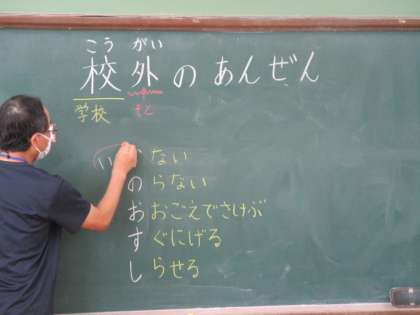 こう がい
校外のあんぜん
学校 そと
い ない
のらない
おおごえでさけぶ
すぐにげる
しらせる